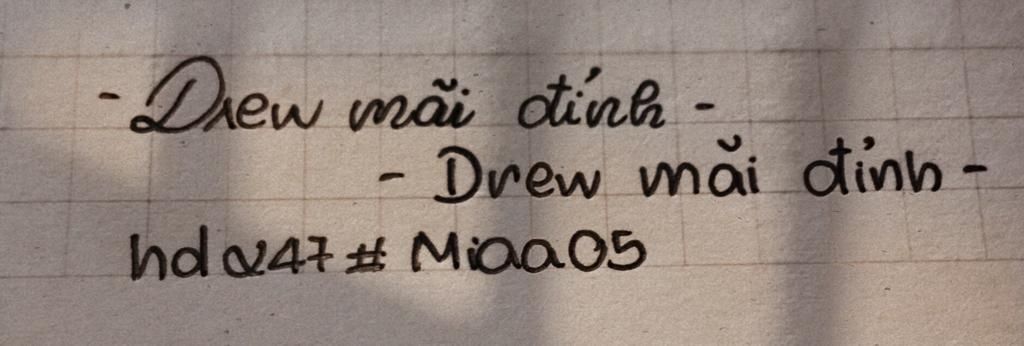 - Drew mãi đỉnh -
- Drew mãi đỉnh -
hdα247# Miaa05